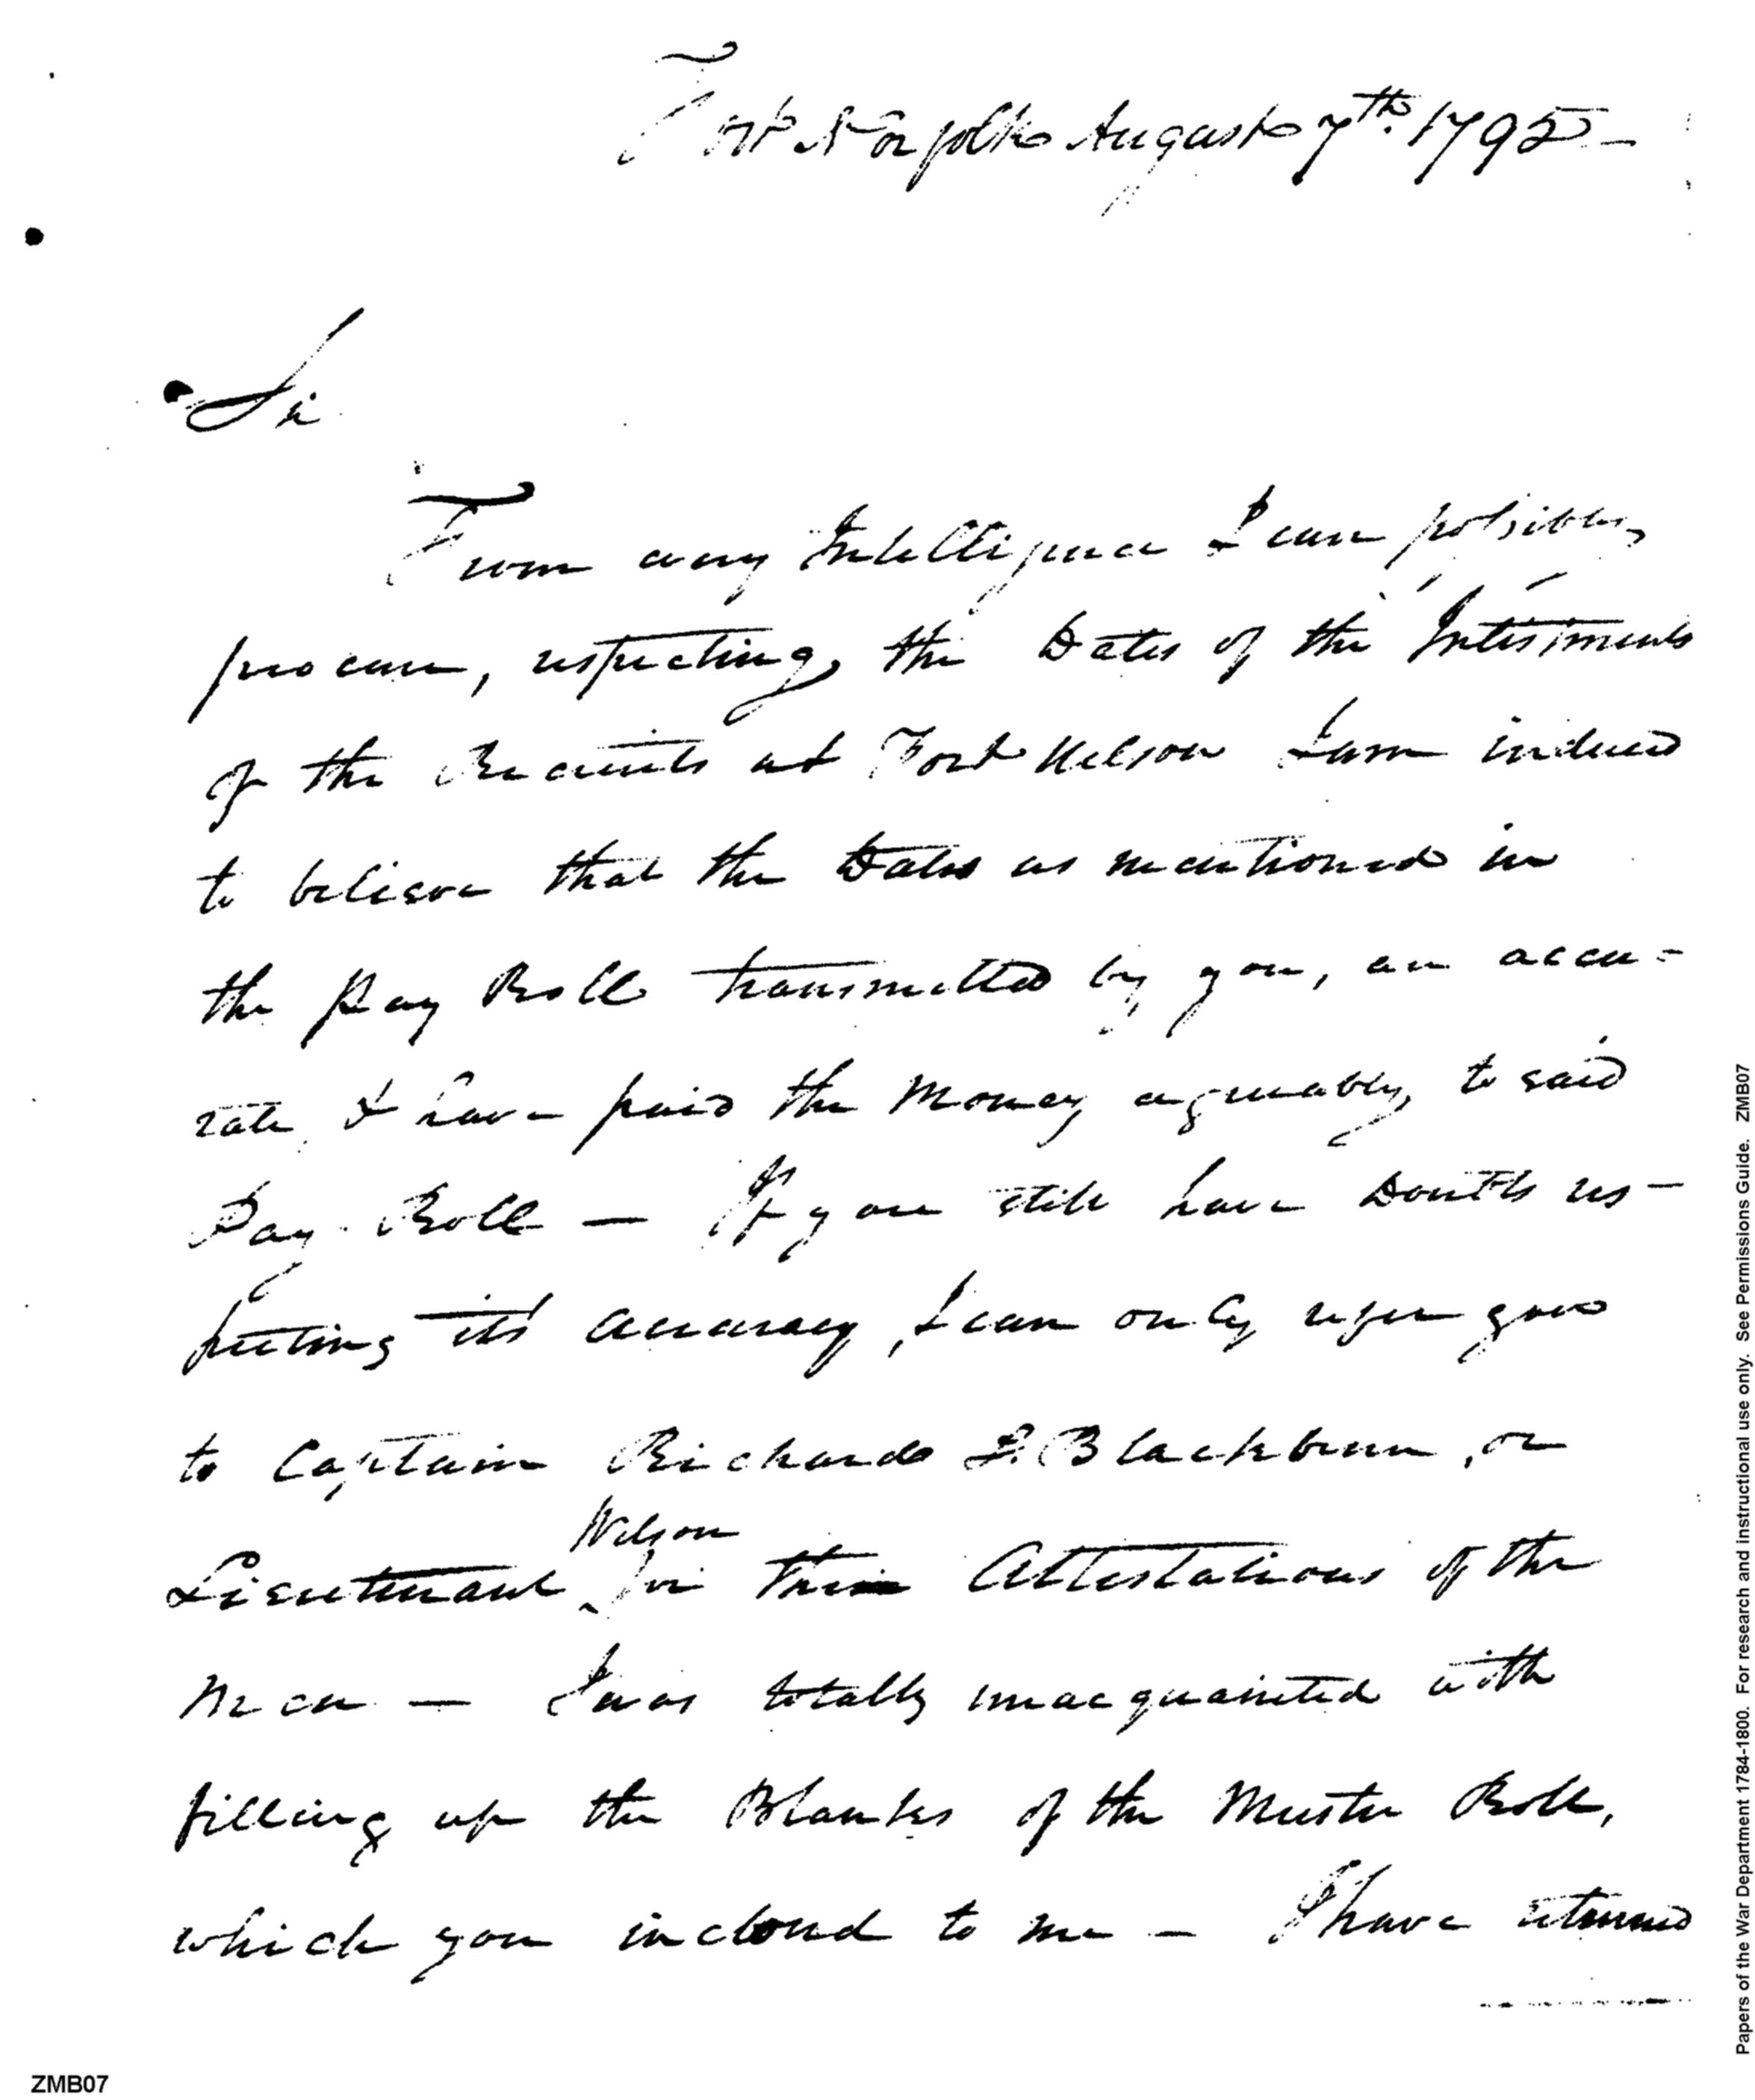 Fort Norfolk August 7th. 1795 —
Sir
From any Intelligence I can possibly
procure, respecting the Dates of the Intistments
of the Recruits at Fort Nelson I am induced
to believe that the Dates as mentioned in
the Pay Roll transmitted by you, are accu=
rate, & have paid the Money agreeably to said
Pay Roll — If you still have Doubts res-
pecting its accuracy, I can only refer you
to Captain Richard S. Blackburn, or
Wilson
Lieutenant ‸ for their Attestations of the
Men — I was totally unacquainted with
filling up the Blanks of the Muster Roll,
which you inclosed to me — I have returned
Papers of the War Department 1784-1800. For research and instructional use only. See Permissions Guide. ZMB07
ZMB07